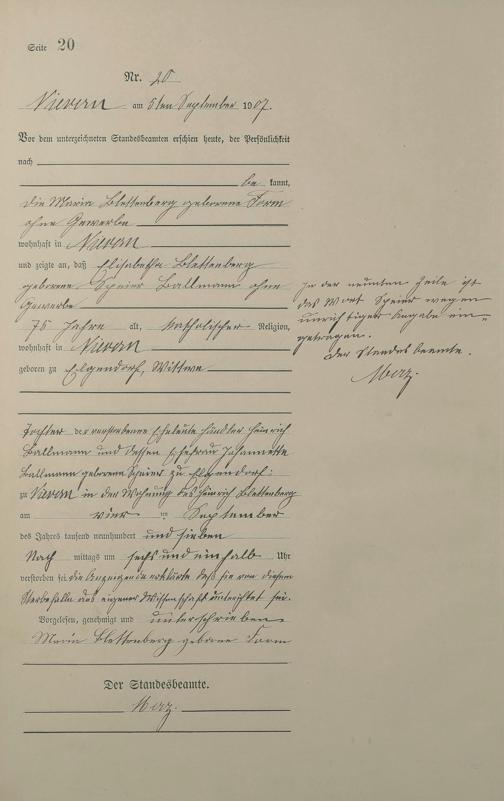 Seite 20
Nr. 20
Nievern am 5ten September 1907.
Vor dem unterzeichneten Standesbeamten erschien heute, der Persönlichkeit
nach
be kannt,
die Maria Blettenberg geborene Form
ohne Gewerbe
wohnhaft in Nievern
und zeigte an, daß Elisabetha Blettenberg
geborene Speier Ballmann ohne
Gewerbe
75 Jahre alt, katholischer Religion,
wohnhaft in Nievern
geboren zu Elgendorf, Wittwe
Tochter der verstorbene Eheleute Händler Heinrich
Ballmann und dessen Ehefrau Johannette
Ballmann geborene Speier zu Elgendorf:
zu Nievern in der Wohnung des Heinrich Blettenberg
am vier ten September
des Jahres tausend neunhundert und sieben
Nach mittags um sechs und ein halb Uhr
verstorben sei die Anzeigende erklärte daß sie von diesem
Sterbefalle aus eigener Wissenschaft unterrichtet sei.
Vorgelesen, genehmigt und unterschrieben
Maria Blettenberg geborne Form
Der Standesbeamte.
Merz.
In der neunten Zeile ist
das Wort Speier wegen
unrichtiger Angabe ein-
getragen.
Der Standesbeamte.
Merz.